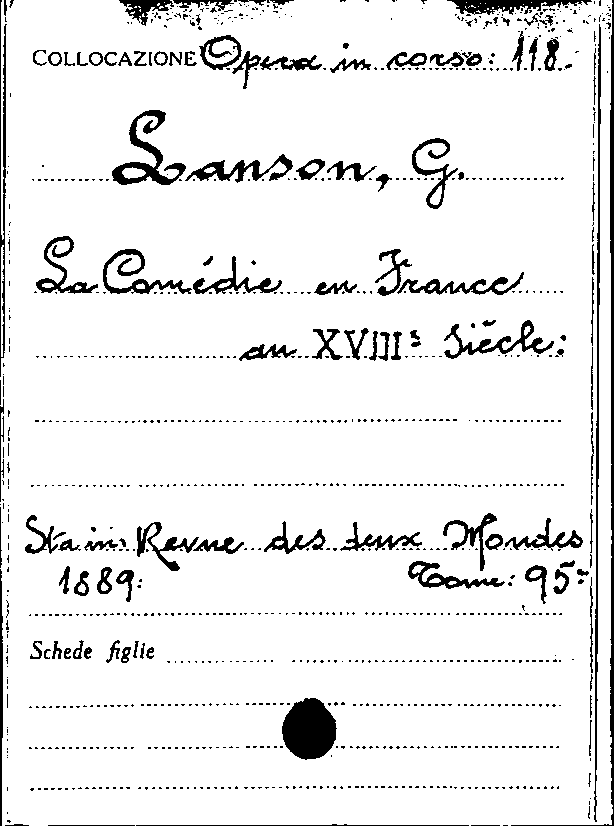 COLLOCAZIONE Opera in corso: 118.
Lanson, G.
La Comédie en France
au XVIIIe Siècle:
Sta in: Revue des deux Mondes
1889: Tome: 95=
Schede figlie